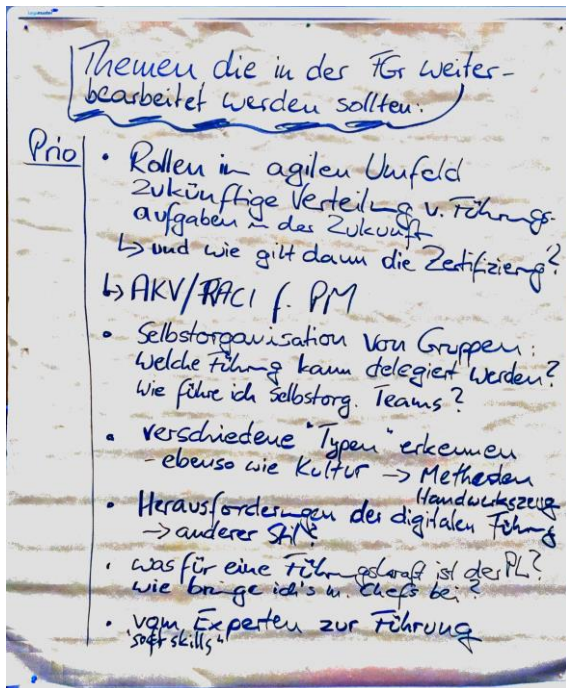 Themen die in der FGr weiter-
bearbeitet werden sollten:
Prio
• Rollen im agilen Umfeld
Zukünftige Verteilung v. Führungs-
aufgaben in der Zukunft
↳ und wie gilt dann die Zertifizierung?
↳ AKV/RACI f. PM
• Selbstorganisation von Gruppen:
Welche Führung kann delegiert werden?
Wie führe ich selbstorg. Teams?
• verschiedene "Typen" erkennen
- ebenso wie Kultur → Methoden
Handwerkszeug
• Herausforderungen der digitalen Führung
→ anderer Stil?
• was für eine Führungskraft ist der PL?
wie bringe ich's m. Chefs bei?
• vom Experten zur Führung
"soft skills"